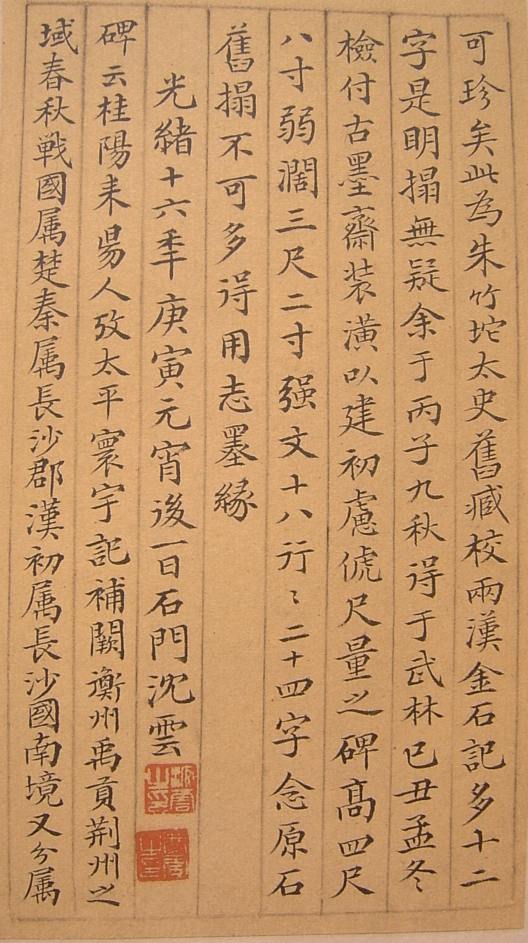 可珍矣此為朱竹坨太史舊臧校兩漢金石記多十二
字是明搨無疑余于丙子九秋得于武林已丑孟冬
檢付古墨齋裝潢以建初慮俿尺量之碑高四尺
八寸弱濶三尺二寸强文十八行〻二十四字念原石
舊搨不可多得用志墨緣
光緒十六秊庚寅元宵後一日石門沈雲
碑云桂陽耒昜人攷太平寰宇記補闕衡州禹貢荆州之
域春秋戰國属楚秦属長沙郡漢初属長沙國南境又分属